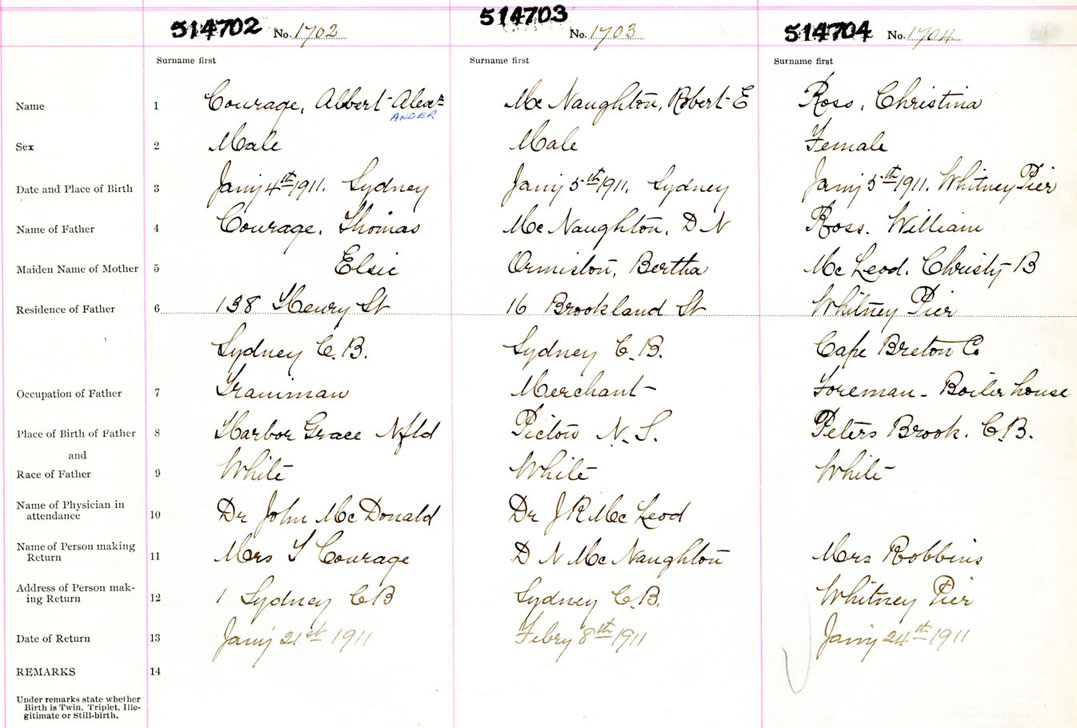 514702 No. 1702 514703 No. 1703 514704 No. 1704
Surname first Surname first Surname first
Name 1 Courage, Albert Alexr Mc Naughton, Robert E Ross, Christina
ANDER
Sex 2 Male Male Female
Date and Place of Birth 3 Jany 4th 1911. Sydney Jany 5th 1911. Sydney Jany 5th 1911. Whitney Pier
Name of Father 4 Courage, Thomas Mc Naughton, D N Ross. William
Maiden Name of Mother 5 Elsie Ormiston, Bertha Mc Leod. Christy B
Residence of Father 6 138 Henry St 16 Brookland St Whitney Pier
Sydney C.B. Sydney C.B. Cape Breton Co
Occupation of Father 7 Trainman Merchant Foreman - Boiler house
Place of Birth of Father 8 Harbor Grace Nfld Pictou N.S. Peters Brook. C.B.
and
Race of Father 9 White White White
Name of Physician in
attendance 10 Dr John McDonald Dr J R McLeod
Name of Person making
Return 11 Mrs T Courage D N McNaughton Mrs Robbins
Address of Person mak-
ing Return 12 1 Sydney CB Sydney C.B. Whitney Pier
Date of Return 13 Jany 21st 1911 Febry 8th 1911 Jany 24th 1911
REMARKS 14
Under remarks state whether
Birth is Twin, Triplet, Ille-
gitimate or Still-birth.